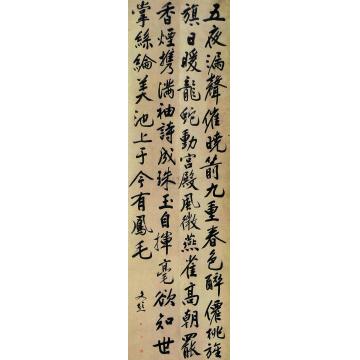 五夜漏聲催曉箭九重春色醉僊桃旌
旗日暖龍蛇動宮殿風微燕雀高朝罷
香煙携滿袖詩成珠玉自揮毫欲知世
掌絲綸美池上于今有鳳毛